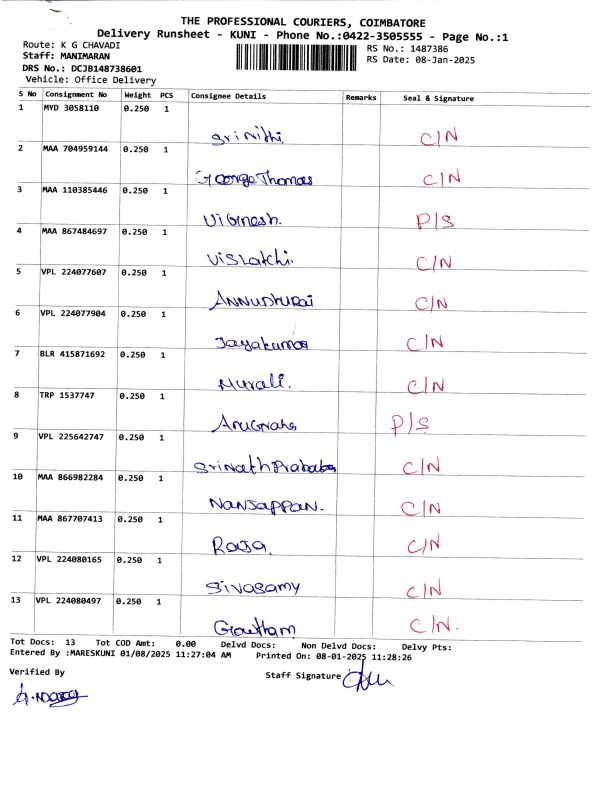 THE PROFESSIONAL COURIERS, COIMBATORE
Delivery Runsheet - KUNI - Phone No.:0422-3505555 - Page No.:1
Route: K G CHAVADI
RS No.: 1487386
Staff: MANIMARAN
RS Date: 08-Jan-2025
DRS No.: DCJB148738601
Vehicle: Office Delivery
S No Consignment No Weight PCS Consignee Details Remarks Seal & Signature
1 MYD 3058110 0.250 1
SriNithi C/N
2 MAA 704959144 0.250 1
George Thomas C/N
3 MAA 110385446 0.250 1
ViGnesh. P/S
4 MAA 867484697 0.250 1
Vislatchi. C/N
5 VPL 224077607 0.250 1
ANNUDHURAI C/N
6 VPL 224077904 0.250 1
Jayakumar C/N
7 BLR 415871692 0.250 1
Murali. C/N
8 TRP 1537747 0.250 1
AnuGraha P/S
9 VPL 225642747 0.250 1
SriNath Prababa C/N
10 MAA 866982284 0.250 1
NANJAPPAN. C/N
11 MAA 867707413 0.250 1
RAJA. C/N
12 VPL 224080165 0.250 1
Sivasamy C/N
13 VPL 224080497 0.250 1
Goutham C/N.
Tot Docs: 13 Tot COD Amt: 0.00 Delvd Docs: Non Delvd Docs: Delvy Pts:
Entered By :MARESKUNI 01/08/2025 11:27:04 AM Printed On: 08-01-2025 11:28:26
Verified By
Staff Signature